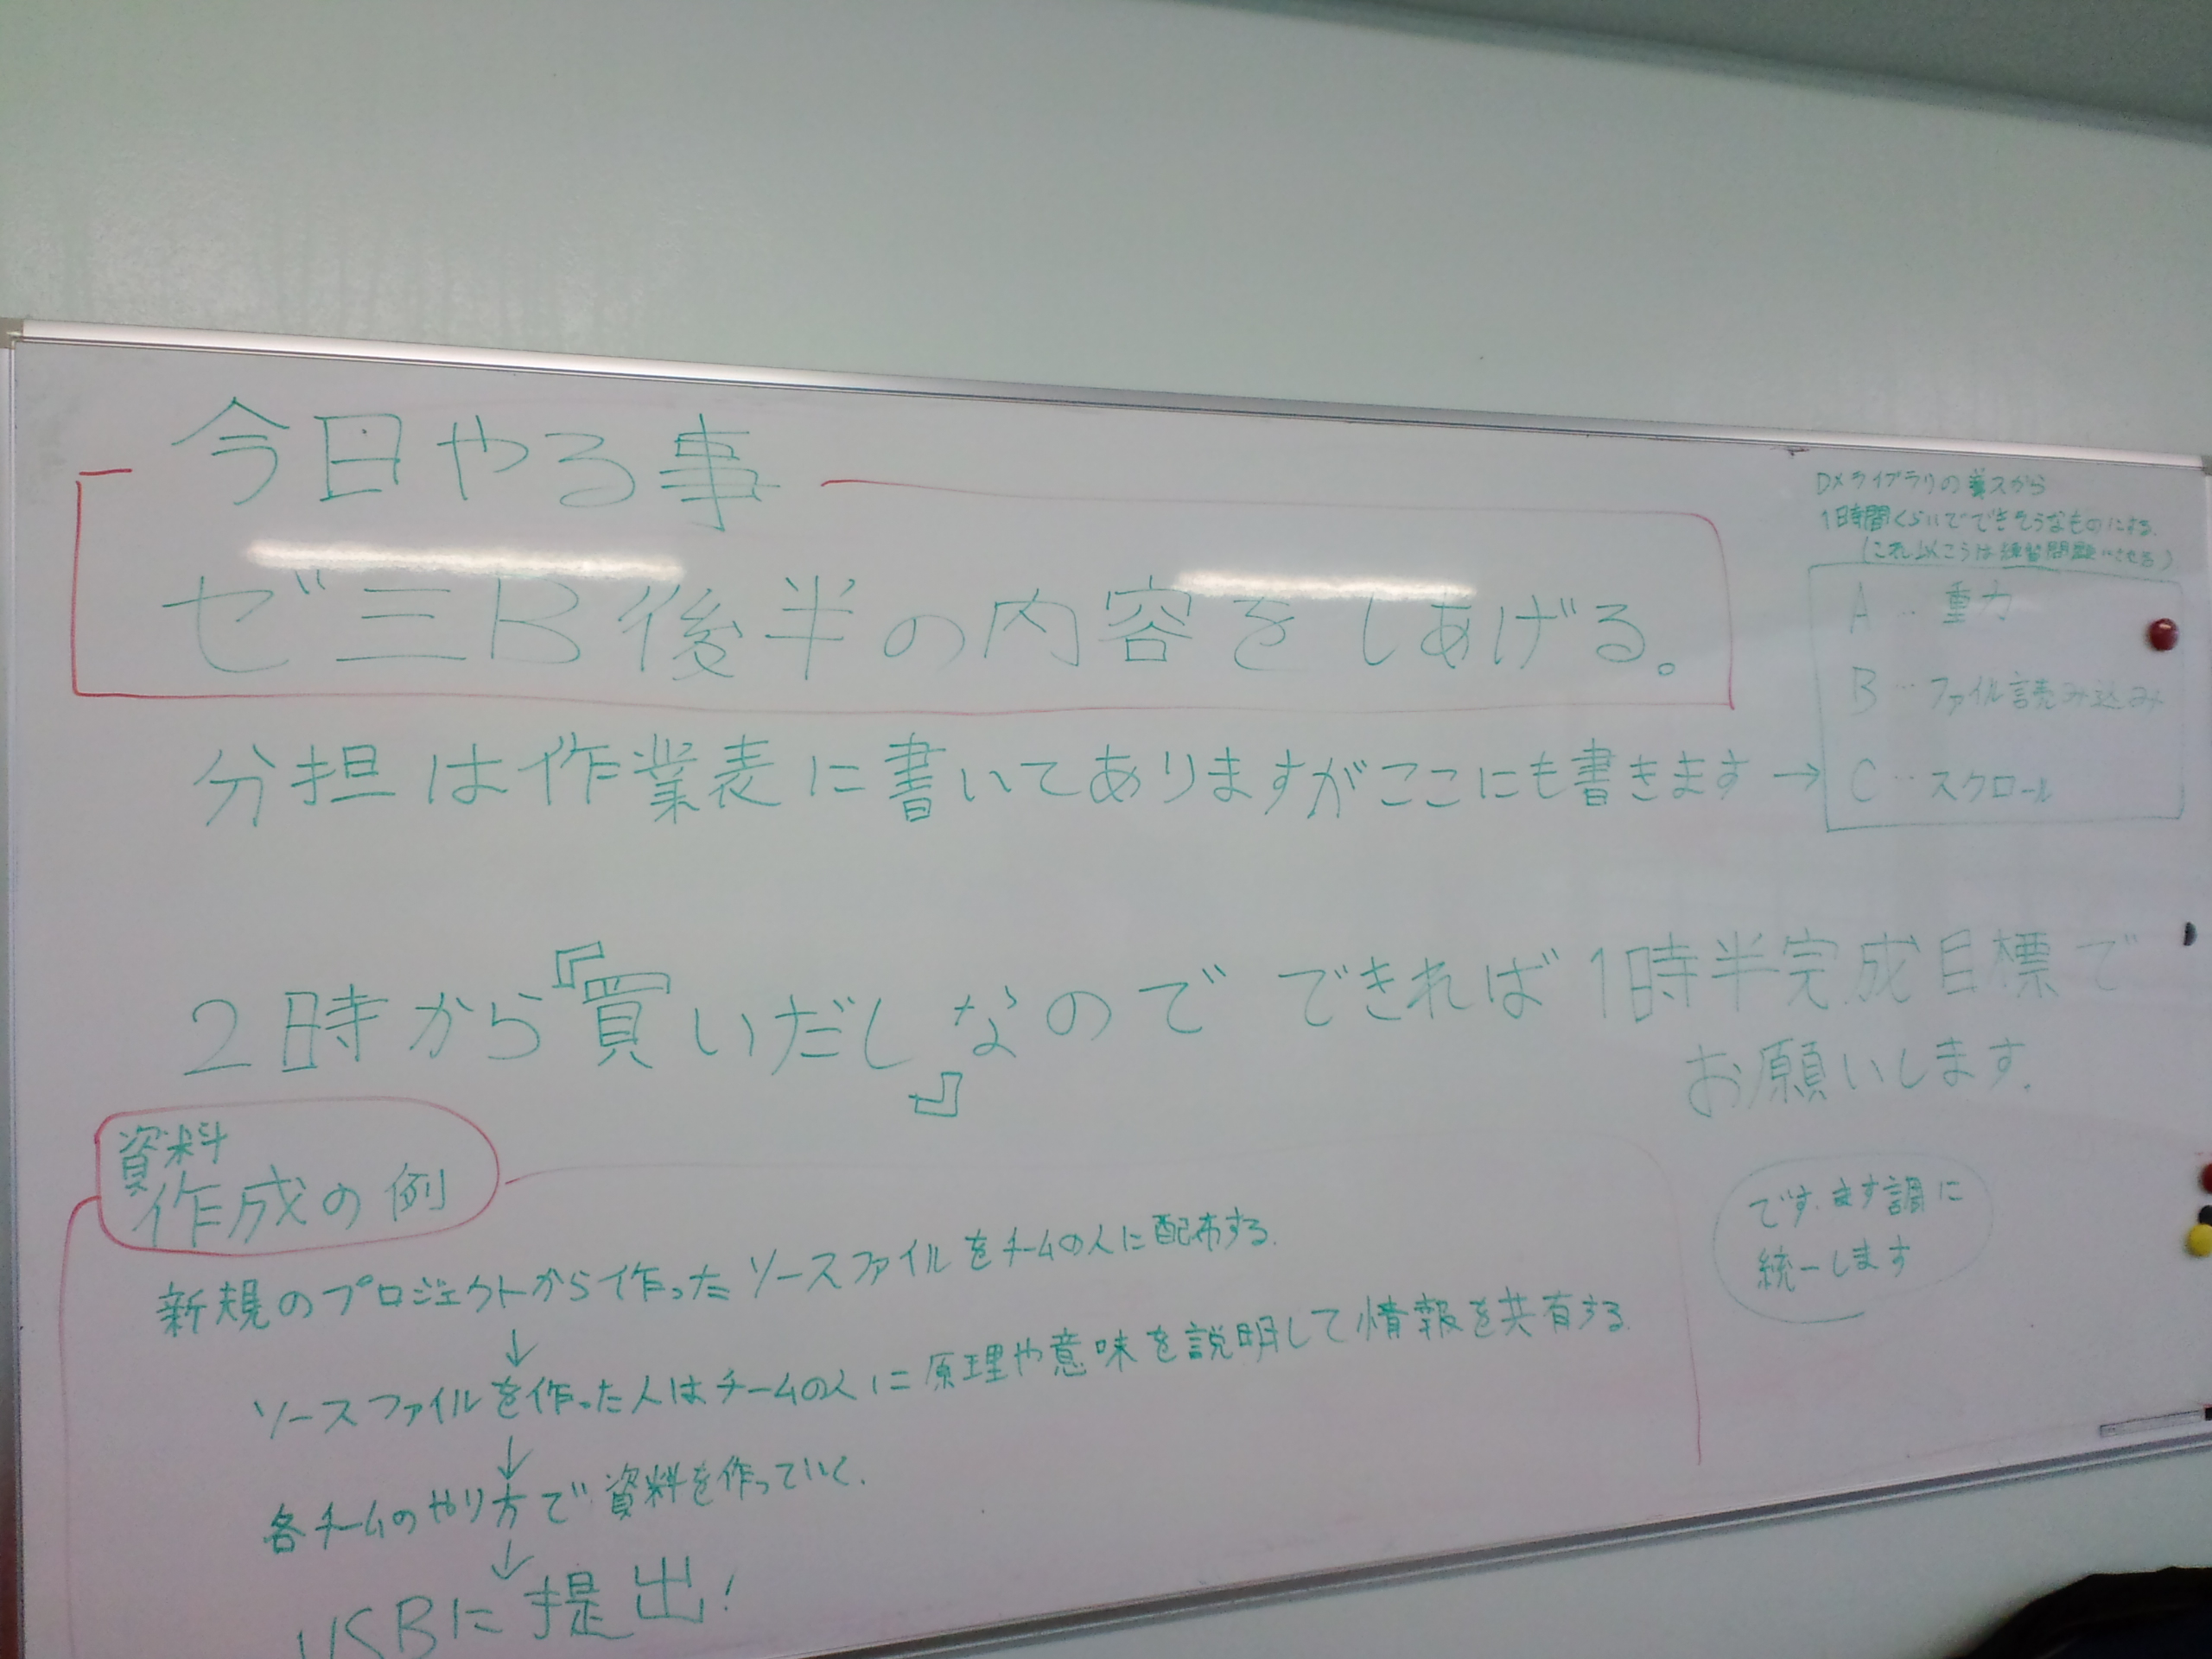 今日やる事
ゼミB後半の内容をしあげる。
分担は作業表に書いてありますがここにも書きます→
DXライブラリの導入から
1時間くらいでできそうなものにする.
(これ以こうは練習問題にさせる)
A‥重力
B‥ファイル読み込み
C‥スクロール
2時から『買いだし』なのでできれば1時半完成目標で
お願いします.
資料
作成の例
新規のプロジェクトから作ったソースファイルをチームの人に配布する.
↓
ソースファイルを作った人はチームの人に原理や意味を説明して情報を共有する
↓
各チームのやり方で資料を作っていく.
↓
USBに提出!
です.ます調に
統一します